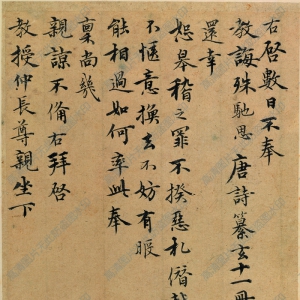 右啓數日不奉
教誨殊馳思唐詩纂玄十一冊
還幸
恕舉稽之罪不揆惡札僭
不愜意換去不妨有暇
能相過如何率此奉
稟尚幾
親諒不備右拜啓
教授仲長尊親坐下